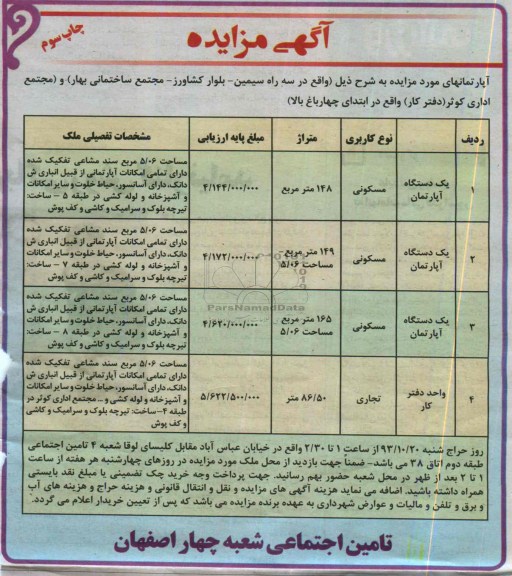 آگهی مزایده
چاپ سوم
آپارتمانهای مورد مزایده به شرح ذیل (واقع در سه راه سیمین- بلوار کشاورز- مجتمع ساختمانی بهار) و (مجتمع
اداری کوثر(دفتر کار) واقع در ابتدای چهارباغ بالا)
ردیف نوع کاربری متراژ مبلغ پایه ارزیابی مشخصات تفصیلی ملک
۱ یک دستگاه آپارتمان مسکونی ۱۴۸ متر مربع ۴/۱۴۴/۰۰۰/۰۰۰
مساحت ۵/۰۶ مربع سند مشاعی تفکیک شده
دارای تمامی امکانات آپارتمانی از قبیل انباری ش
دانگ، دارای آسانسور، حیاط خلوت و سایر امکانات
و آشپزخانه و لوله کشی در طبقه ۵ - ساخت:
تیرچه بلوک و سرامیک و کاشی و کف پوش
۲ یک دستگاه آپارتمان مسکونی ۱۴۹ متر مربع مساحت ۵/۰۶ ۴/۱۷۲/۰۰۰/۰۰۰
مساحت ۵/۰۶ مربع سند مشاعی تفکیک شده
دارای تمامی امکانات آپارتمانی از قبیل انباری ش
دانگ، دارای آسانسور، حیاط خلوت و سایر امکانات
و آشپزخانه و لوله کشی در طبقه ۷ - ساخت:
تیرچه بلوک و سرامیک و کاشی و کف پوش
۳ یک دستگاه آپارتمان مسکونی ۱۶۵ متر مربع مساحت ۵/۰۶ ۴/۶۲۰/۰۰۰/۰۰۰
مساحت ۵/۰۶ مربع سند مشاعی تفکیک شده
دارای تمامی امکانات آپارتمانی از قبیل انباری ش
دانگ، دارای آسانسور، حیاط خلوت و سایر امکانات
و آشپزخانه و لوله کشی در طبقه ۸ - ساخت:
تیرچه بلوک و سرامیک و کاشی و کف پوش
۴ واحد دفتر کار تجاری ۸۶/۵۰ متر ۵/۶۲۲/۵۰۰/۰۰۰
مساحت ۵/۰۶ مربع سند مشاعی تفکیک شده
دارای تمامی امکانات آپارتمانی از قبیل انباری ش
دانگ، دارای آسانسور، حیاط خلوت و سایر امکانات
و آشپزخانه و لوله کشی و _ مجتمع اداری کوثر در
طبقه ۴-ساخت: تیرچه بلوک و سرامیک و کاشی
و کف پوش
ParsNamadData
روز حراج شنبه ۹۳/۱۰/۲۰ از ساعت ۱ تا ۲/۳۰ واقع در خیابان عباس آباد مقابل کلیسای لوقا شعبه ۴ تامین اجتماعی
طبقه دوم اتاق ۳۸ می باشد- ضمناً جهت بازدید از محل ملک مورد مزایده در روزهای چهارشنبه هر هفته از ساعت
۱ تا ۲ بعد از ظهر در محل شعبه حضور بهم رسانید. جهت پرداخت وجه خرید چک تضمینی یا مبلغ نقد بایستی
همراه داشته باشید. اضافه می نماید هزینه آگهی های مزایده و نقل و انتقال قانونی و هزینه حراج و هزینه های آب
و برق و تلفن و مالیات و عوارض شهرداری به عهده برنده مزایده می باشد که پس از تعیین خریدار اعلام می گردد.
تامین اجتماعی شعبه چهار اصفهان